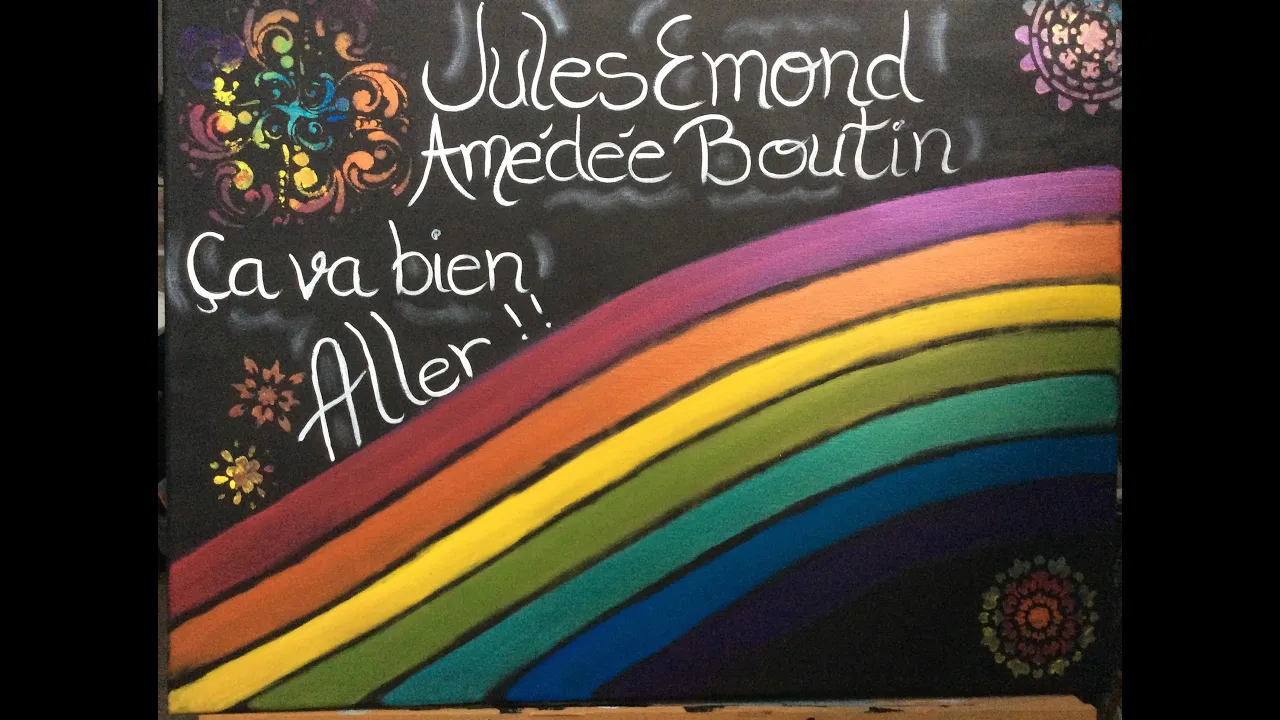 Jules Emond
Amédée Boutin
Ça va bien
Aller !!